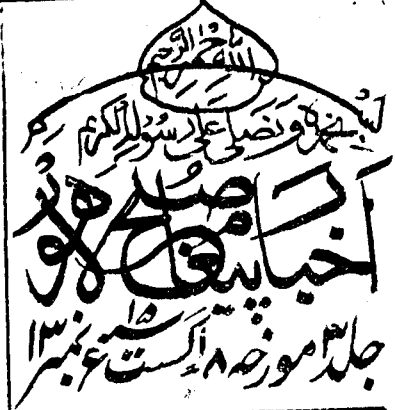 بسم اللہ الرحمن الرحیم
نحمدہ و نصلی علی رسولہ الکریم
اخبار پیغام صلح لاہور
جلد ۳ مورخہ ۸ اگست ۱۵ء نمبر ۱۳